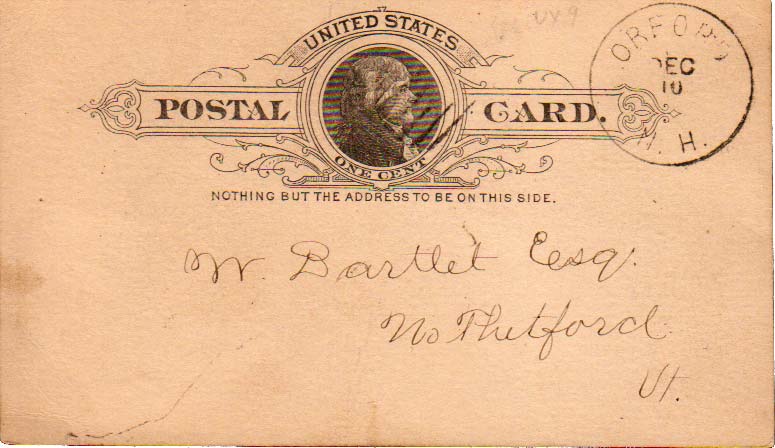 UX9
UNITED STATES
POSTAL CARD.
ONE CENT
NOTHING BUT THE ADDRESS TO BE ON THIS SIDE.
ORFORD
DEC
10
N. H.
W. Bartlet Eesq.
No Thetford
Vt.